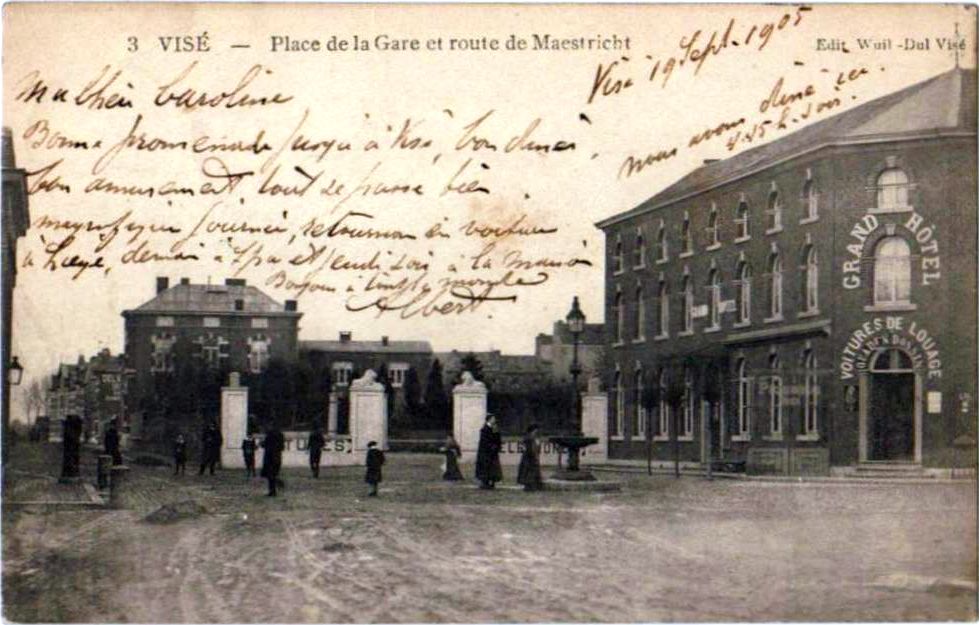 3 VISÉ — Place de la Gare et route de Maestricht
Edit. Wuil-Dul Visé
Visé 19 Sept. 1905
nous avons dîné ici
4.45 h. soir.
Caroline
Bonne promenade jusqu'à Visé, bon diner,
bon amusement, tout se passe bien
journée, retournon en voiture
à Liege, demain à Spa et jeudi soir à la maison
Bonjour à tout le monde
Albert.
GRAND HÔTEL
VOITURES DE LOUAGE